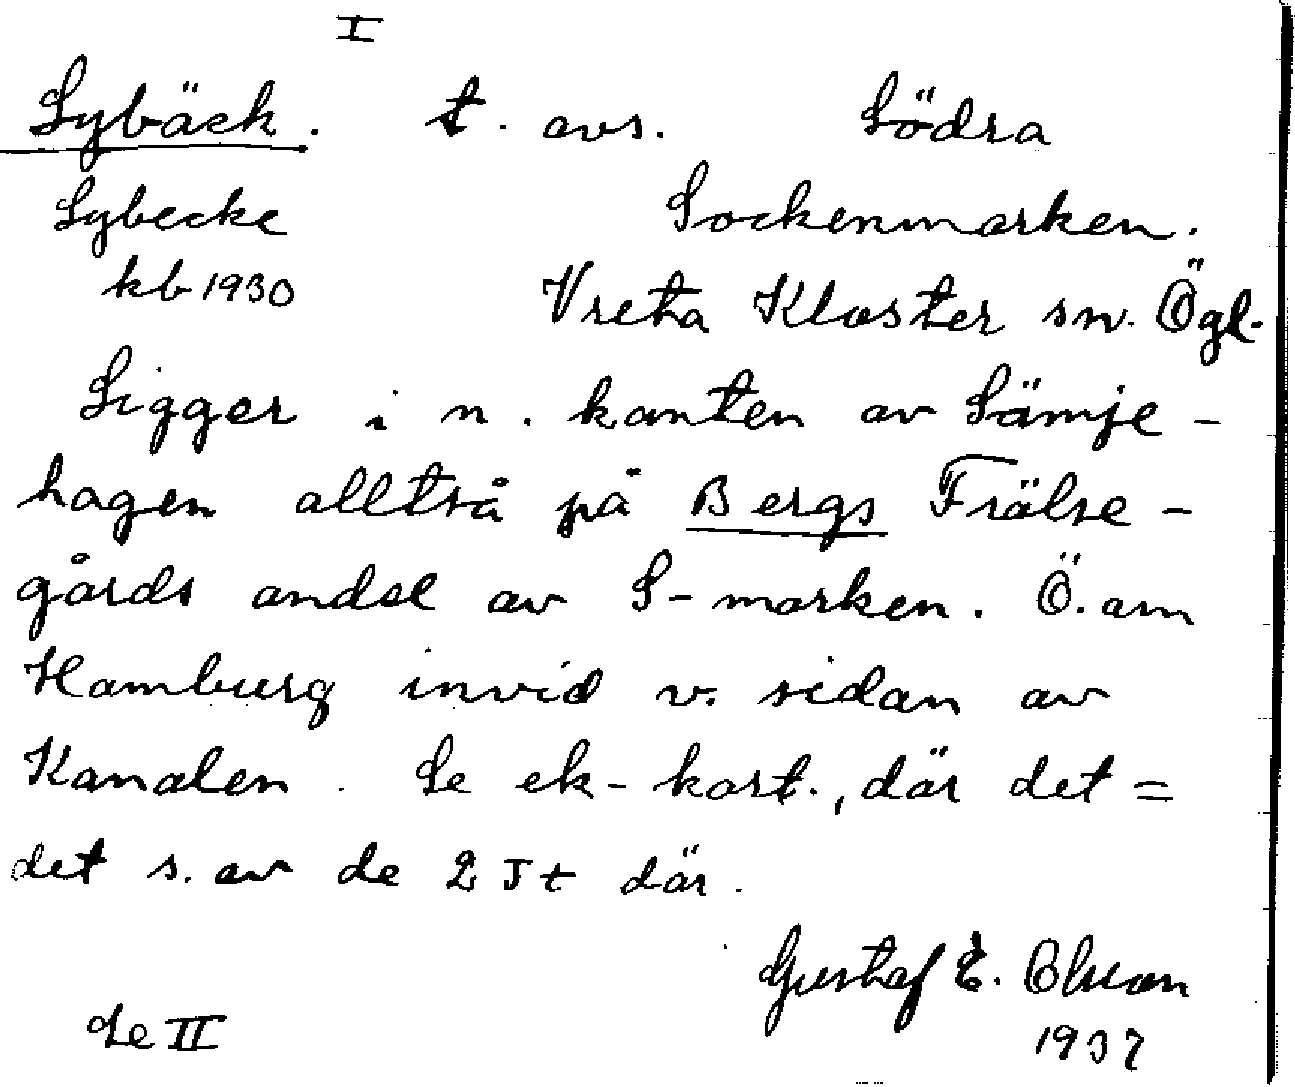 I
Lybäck. t. avs. Södra
Lybecke Sockenmarken.
kb 1930 Vreta Kloster sn. Ögl.
Ligger i n. kanten av Sämje-
hagen alltså på Bergs Frälse-
gårds andel av S-marken. Ö. om
Hamburg invid v. sidan av
Kanalen. Se ek-kart., där det =
det s. av de 2 där.
Gustaf E. Olsson
Se II 1937